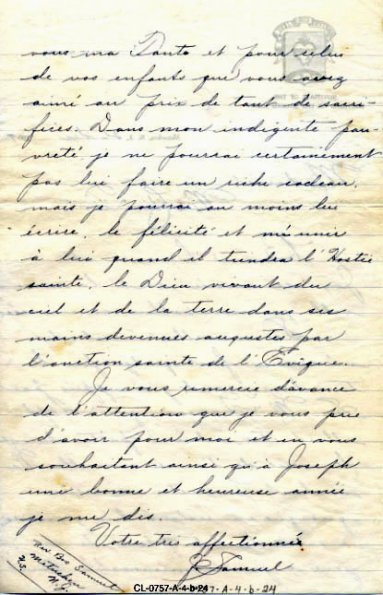 vous ma Tante et pour celui
de vos enfants que vous avez
aimé au prix de tant de sacri-
fices. Dans mon indigente pau-
vreté je ne pourrai certainement
pas lui faire un riche cadeau,
mais je pourrai au moins lui
écrire, le féliciter et m'unir
à lui quand il tiendra l'Hostie
sainte, le Dieu vivant du
ciel et de la terre dans ses
mains devenues augustes par
l'onction sainte de l'Évêque.
Je vous remercie d'avance
de l'attention que je vous prie
d'avoir pour moi et en vous
souhaitant ainsi qu'à Joseph
une bonne et heureuse année
je me dis.
Votre très affectionné
Samuel
Rev. Bro Samuel
Metuchen
N.J.
CL-0757-A-4-b-24